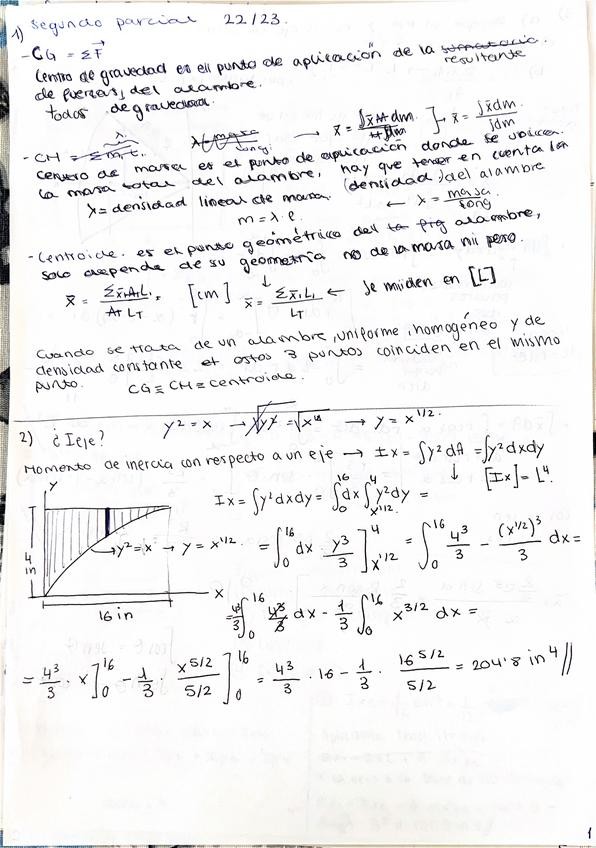 segundo parcial 22/23.
1)
- CG = Σ F⃗
Centro de gravedad es el punto de aplicación de la resultante
de fuerzas del alambre.
todas de gravedad.
x̄ = ∫x̄ dm / ∫dm → x̄ = ∫x̄dm / ∫dm
- CM =
centro de masa es el punto de aplicación donde se ubican
la masa total del alambre, hay que tener en cuenta la
λ = densidad lineal de masa. (densidad) del alambre
m = λ · l. ← λ = masa / long
- Centroide. es el punto geométrico del alambre,
solo depende de su geometría no de la masa nii peso.
x̄ = Σx̄ᵢ Lᵢ / LT [cm] x̄ = Σx̄ᵢ Lᵢ / LT ← Se miiden en [L]
Cuando se trata de un alambre, uniforme, homogéneo y de
densidad constante estos 3 puntos coinciden en el mismo
punto. CG ≡ CM ≡ centroide.
2) ¿Ieje? y² = x → √y² = √x → y = x^1/2.
Momento de inercia con respecto a un eje → Ix = ∫y² dA = ∫y² dxdy
[Ix] = L⁴.
Ix = ∫y² dxdy = ∫₀¹⁶ dx ∫_{x^1/2}^4 y² dy =
y
4 in
y² = x → y = x^1/2
x
16 in
= ∫₀¹⁶ dx y³/3 ]_{x^1/2}^4 = ∫₀¹⁶ 4³/3 - (x^1/2)³/3 dx =
= 4³/3 ∫₀¹⁶ dx - 1/3 ∫₀¹⁶ x^3/2 dx =
= 4³/3 · x ]₀¹⁶ - 1/3 · x^5/2 / 5/2 ]₀¹⁶ = 4³/3 · 16 - 1/3 · 16^5/2 / 5/2 = 204'8 in⁴ //
1